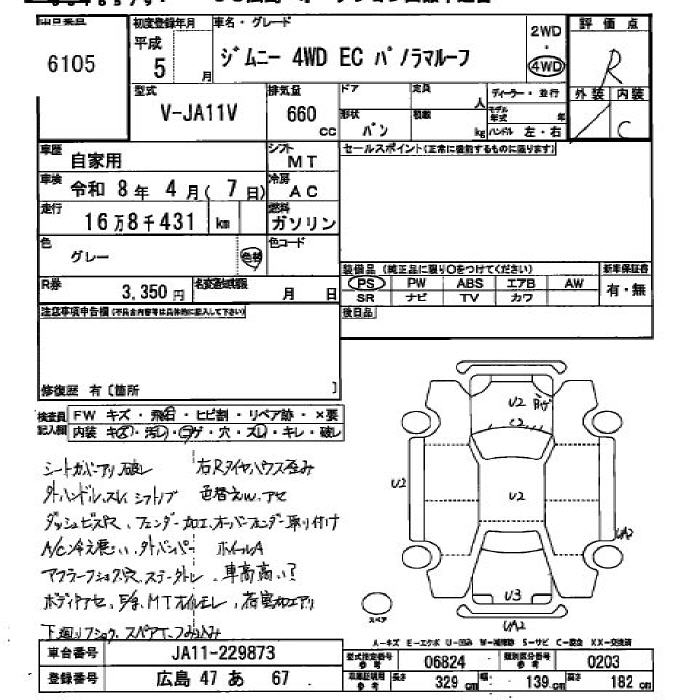 6105
初度登録年月
平成
5 月
車名・グレード
ジムニー 4WD EC パノラマルーフ
2WD
・
4WD
評価点
R
外装 内装
C
型式
V-JA11V
排気量
660 cc
ドア
定員
人
形状
バン
積載
kg
ディーラー・並行
モデル年式
年
ハンドル 左・右
車歴
自家用
シフト
MT
セールスポイント(正常に機能するものに限ります)
車検
令和 8年 4月( 7日)
冷房
AC
走行
16万8千431 km
燃料
ガソリン
色
グレー
色替
色コード
R券
3,350 円
名変期限
月 日
装備品(純正品に限り○をつけてください)
新車保証書
PS PW ABS エアB AW
有・無
SR ナビ TV カワ
後日品
注意事項申告欄(不具合内容等は具体的に記入して下さい)
修復歴 有〔箇所 〕
検査員
記入欄
FW キズ・飛石・ヒビ割・リペア跡・×要
内装 キズ・汚レ・コゲ・穴・スレ・キレ・破レ
シートカバーアリ破レ
右Rタイヤハウス歪み
外ハンドルスレ シフトノブ
色替えW、アセ
フェンダー加工、オーバーフェンダー取り付け
A/C冷え悪い、外バンパー
ホイールA
車高高い?
ボディアセ
MTオイルモレ
下廻りフショク
U2
U2
U2
U2
UA2
U3
UA2
スペア
A-キズ E-エクボ U-凹み W-補修跡 S-サビ C-腐食 XX-交換済
車台番号
JA11-229873
型式指定番号
参考
06824
類別区分番号
参考
0203
登録番号
広島 47 あ 67
車庫証明用
参考
長さ 329 cm
幅 139 cm
高さ 182 cm